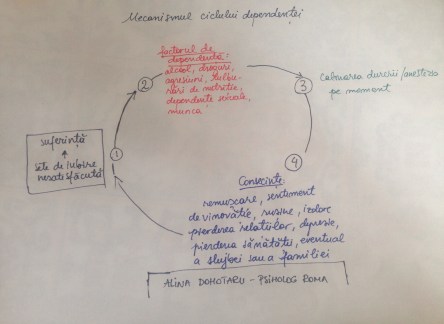 Mecanismul ciclului dependenței
factorul de
dependență:
alcool, droguri,
agresiuni, tulbu-
rări de nutriție,
dependențe sexuale,
munca
2
3
Calmarea durerii/anestezia
pe moment
suferință
sete de iubire
nesatisfăcută
1
4
Consecințe:
remușcare, sentiment
de vinovăție, rușine, izolare
pierderea relațiilor, depresie,
pierderea sănătății, eventual
a slujbei sau a familiei
ALINA DOHOTARU - PSIHOLOG ROMA